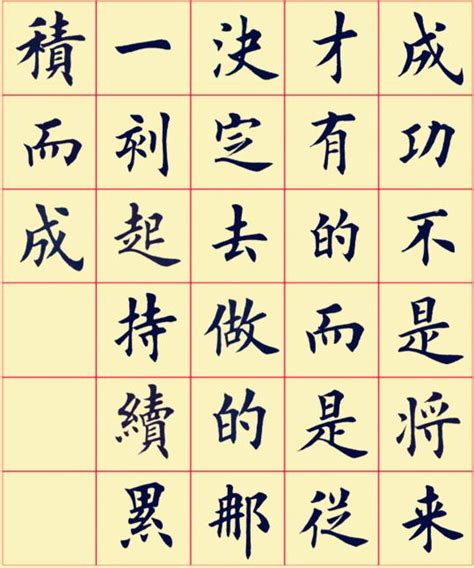 成功不是将来
才有的而是従
決定去做的那
一刻起持續累
積而成